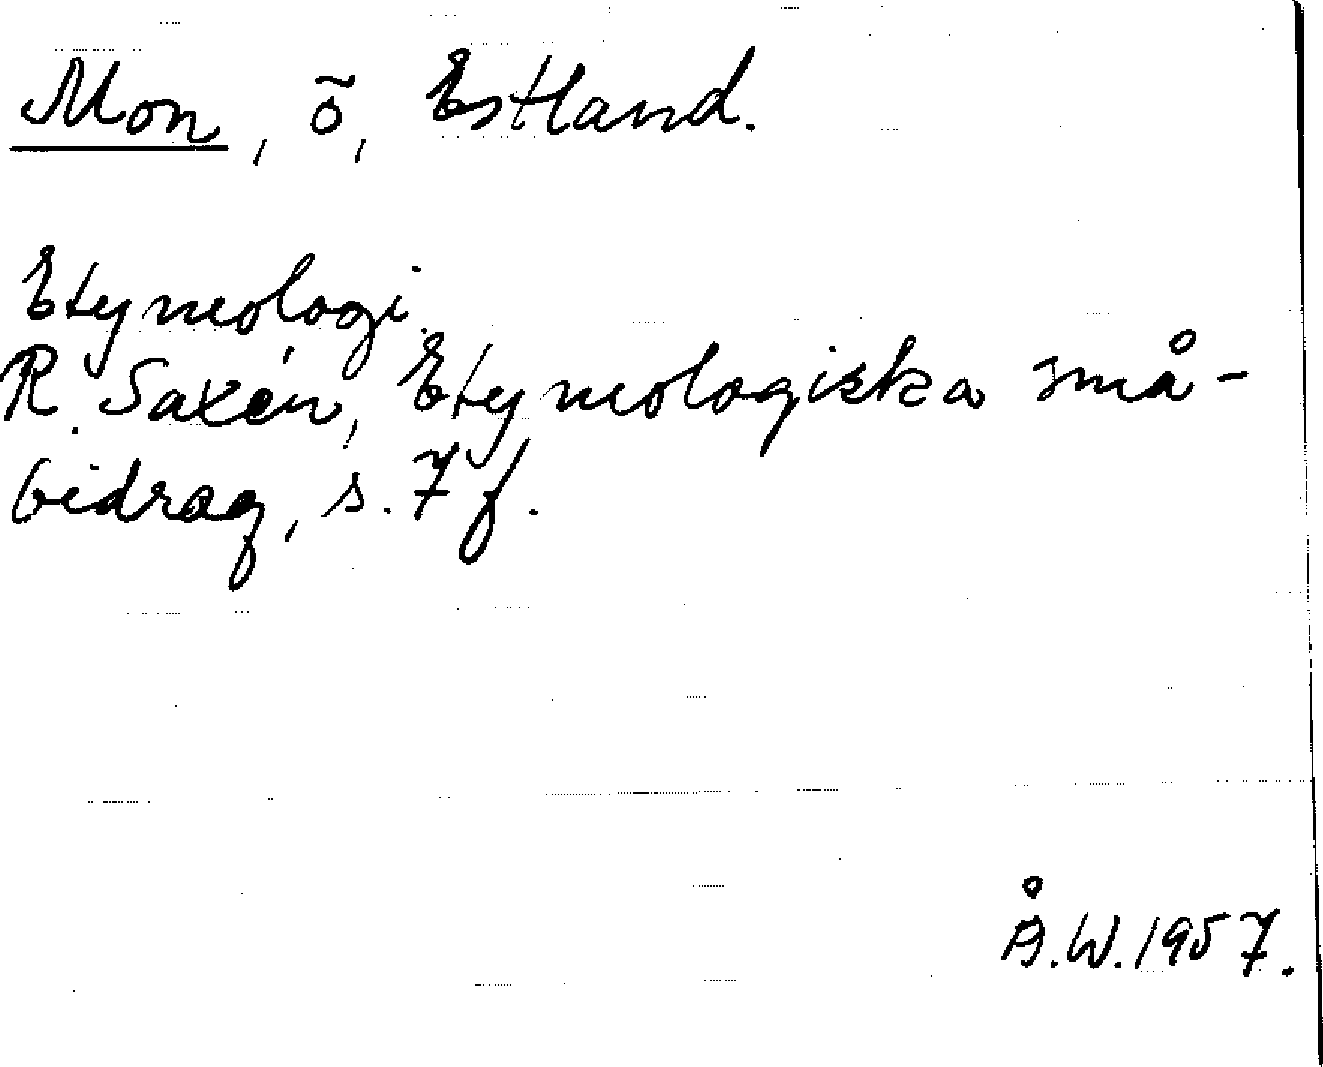 Mon, ö, Estland.
Etymologi.
R. Saxén, Etymologiska små-
bidrag, s. 7 f.
Å.W. 1957.